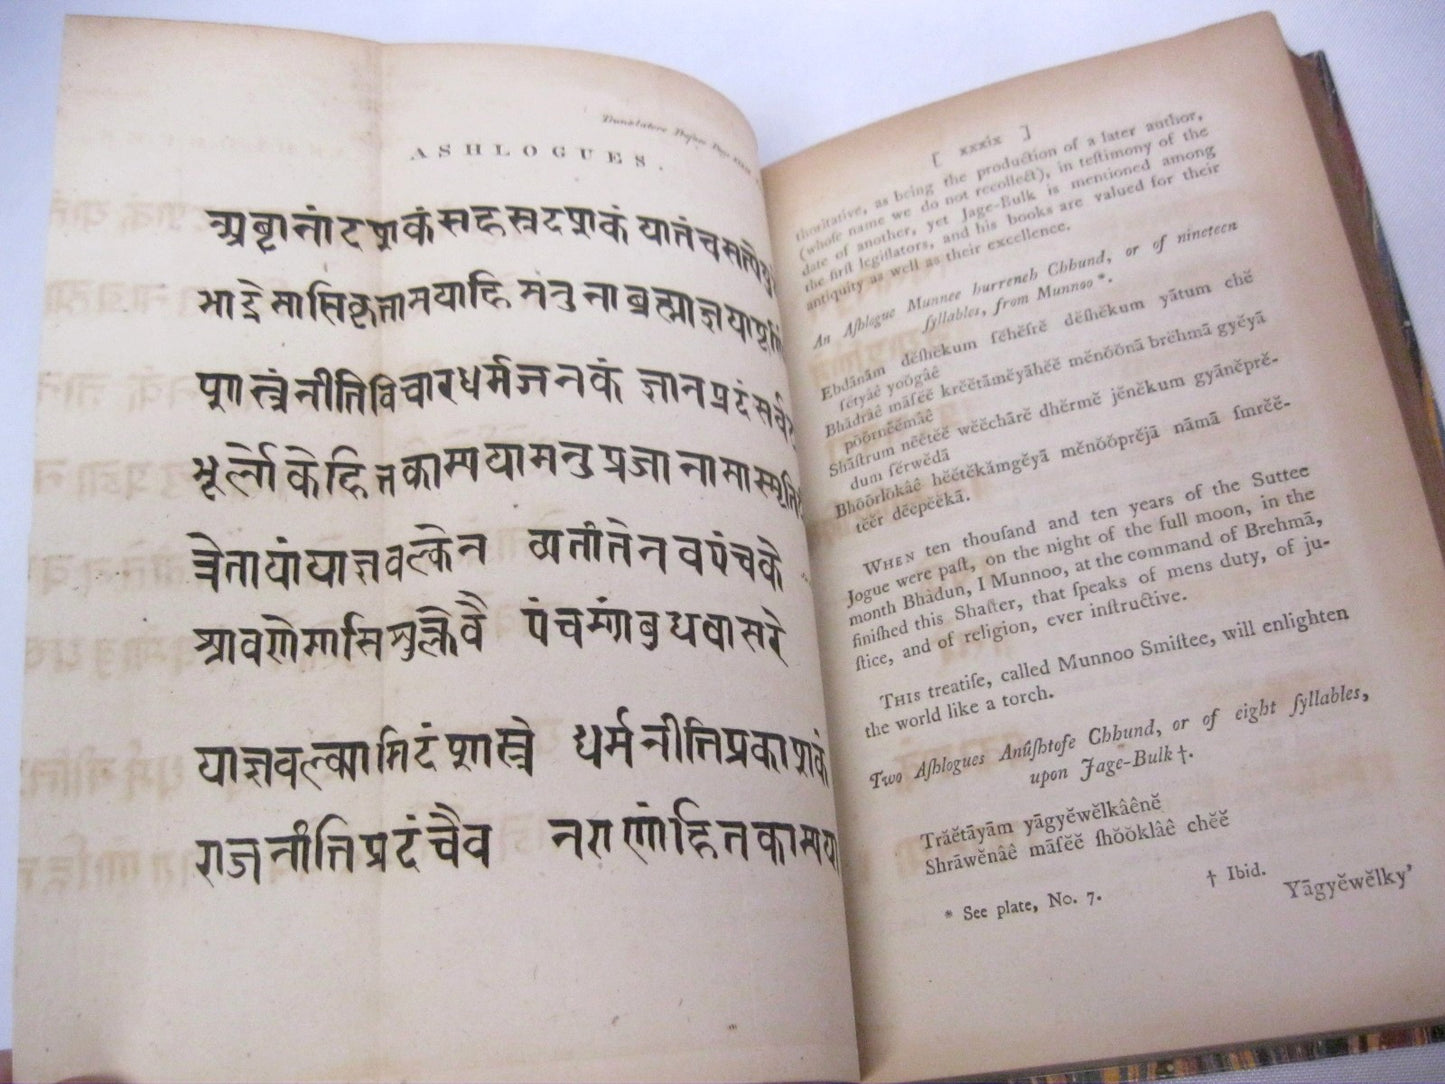 Translators Preface Page
ASHLOGUES.
अब्दानांदशकंसहस्रदशकं यातंचसत्येयु
भाद्रेमासिकृतामयाहि मनुनाब्रह्माज्ञयापूर्णि
शास्त्रंनीतिविचारधर्मजनकं ज्ञानप्रदंसर्व
भूर्लोकेहितकाम्ययामनुप्रजानामास्मृति
त्रेतायांयाज्ञवल्केन व्यतीतेनवपंचके
श्रावणेमासिशुक्लेचै पंचम्यांबुधवासरे
याज्ञवल्क्यामिदंशास्त्रे धर्मनीतिप्रकाशकं
राजनीतिप्रदंचैव नराणांहितकाम्यया
[ xxxix ]
thoritative, as being the production of a later author,
(whose name we do not recollect), in testimony of the
date of another, yet Jage-Bulk is mentioned among
the first legislators, and his books are valued for their
antiquity as well as their excellence.
An Ashlogue Munnee hurreneh Chhund, or of nineteen
syllables, from Munnoo*.
Ebdānām dĕshĕkum sĕhĕsrĕ dĕshĕkum yātum chĕ
sĕtyâê yoōgâê
Bhādrâê māsĕĕ krĕĕtāmĕyāhĕĕ mĕnŏŏnā brĕhmā gyĕyā
pōōrnĕĕmâê
Shāstrum nĕĕtĕĕ wĕĕchārĕ dhĕrmĕ jĕnĕkum gyānĕprĕ-
dum sĕrwĕdā
Bhōōrlōkâê hĕĕtĕkāmgĕyā mĕnŏŏprĕjā nāmā smrĕĕ-
tĕĕr dĕĕpĕĕkā.
WHEN ten thousand and ten years of the Suttee
Jogue were past, on the night of the full moon, in the
month Bhâdun, I Munnoo, at the command of Brehmā,
finished this Shaster, that speaks of mens duty, of ju-
stice, and of religion, ever instructive.
THIS treatise, called Munnoo Smistee, will enlighten
the world like a torch.
Two Ashlogues Anûshtose Chhund, or of eight syllables,
upon Jage-Bulk †.
Trăĕtāyām yāgyĕwĕlkâênĕ
Shrāwĕnâê māsĕĕ shŏŏklâê chĕĕ
* See plate, No. 7.
† Ibid.
Yāgyĕwĕlky'